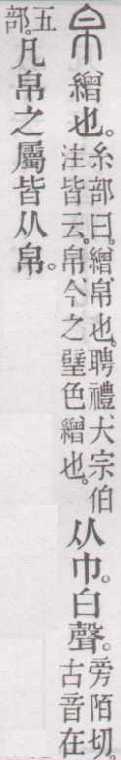 帛繒也。糸部曰。繒、帛也。聘禮、大宗伯注皆云。帛、今之璧色繒也。从巾。白聲。旁陌切。古音在
五部。凡帛之屬皆从帛。